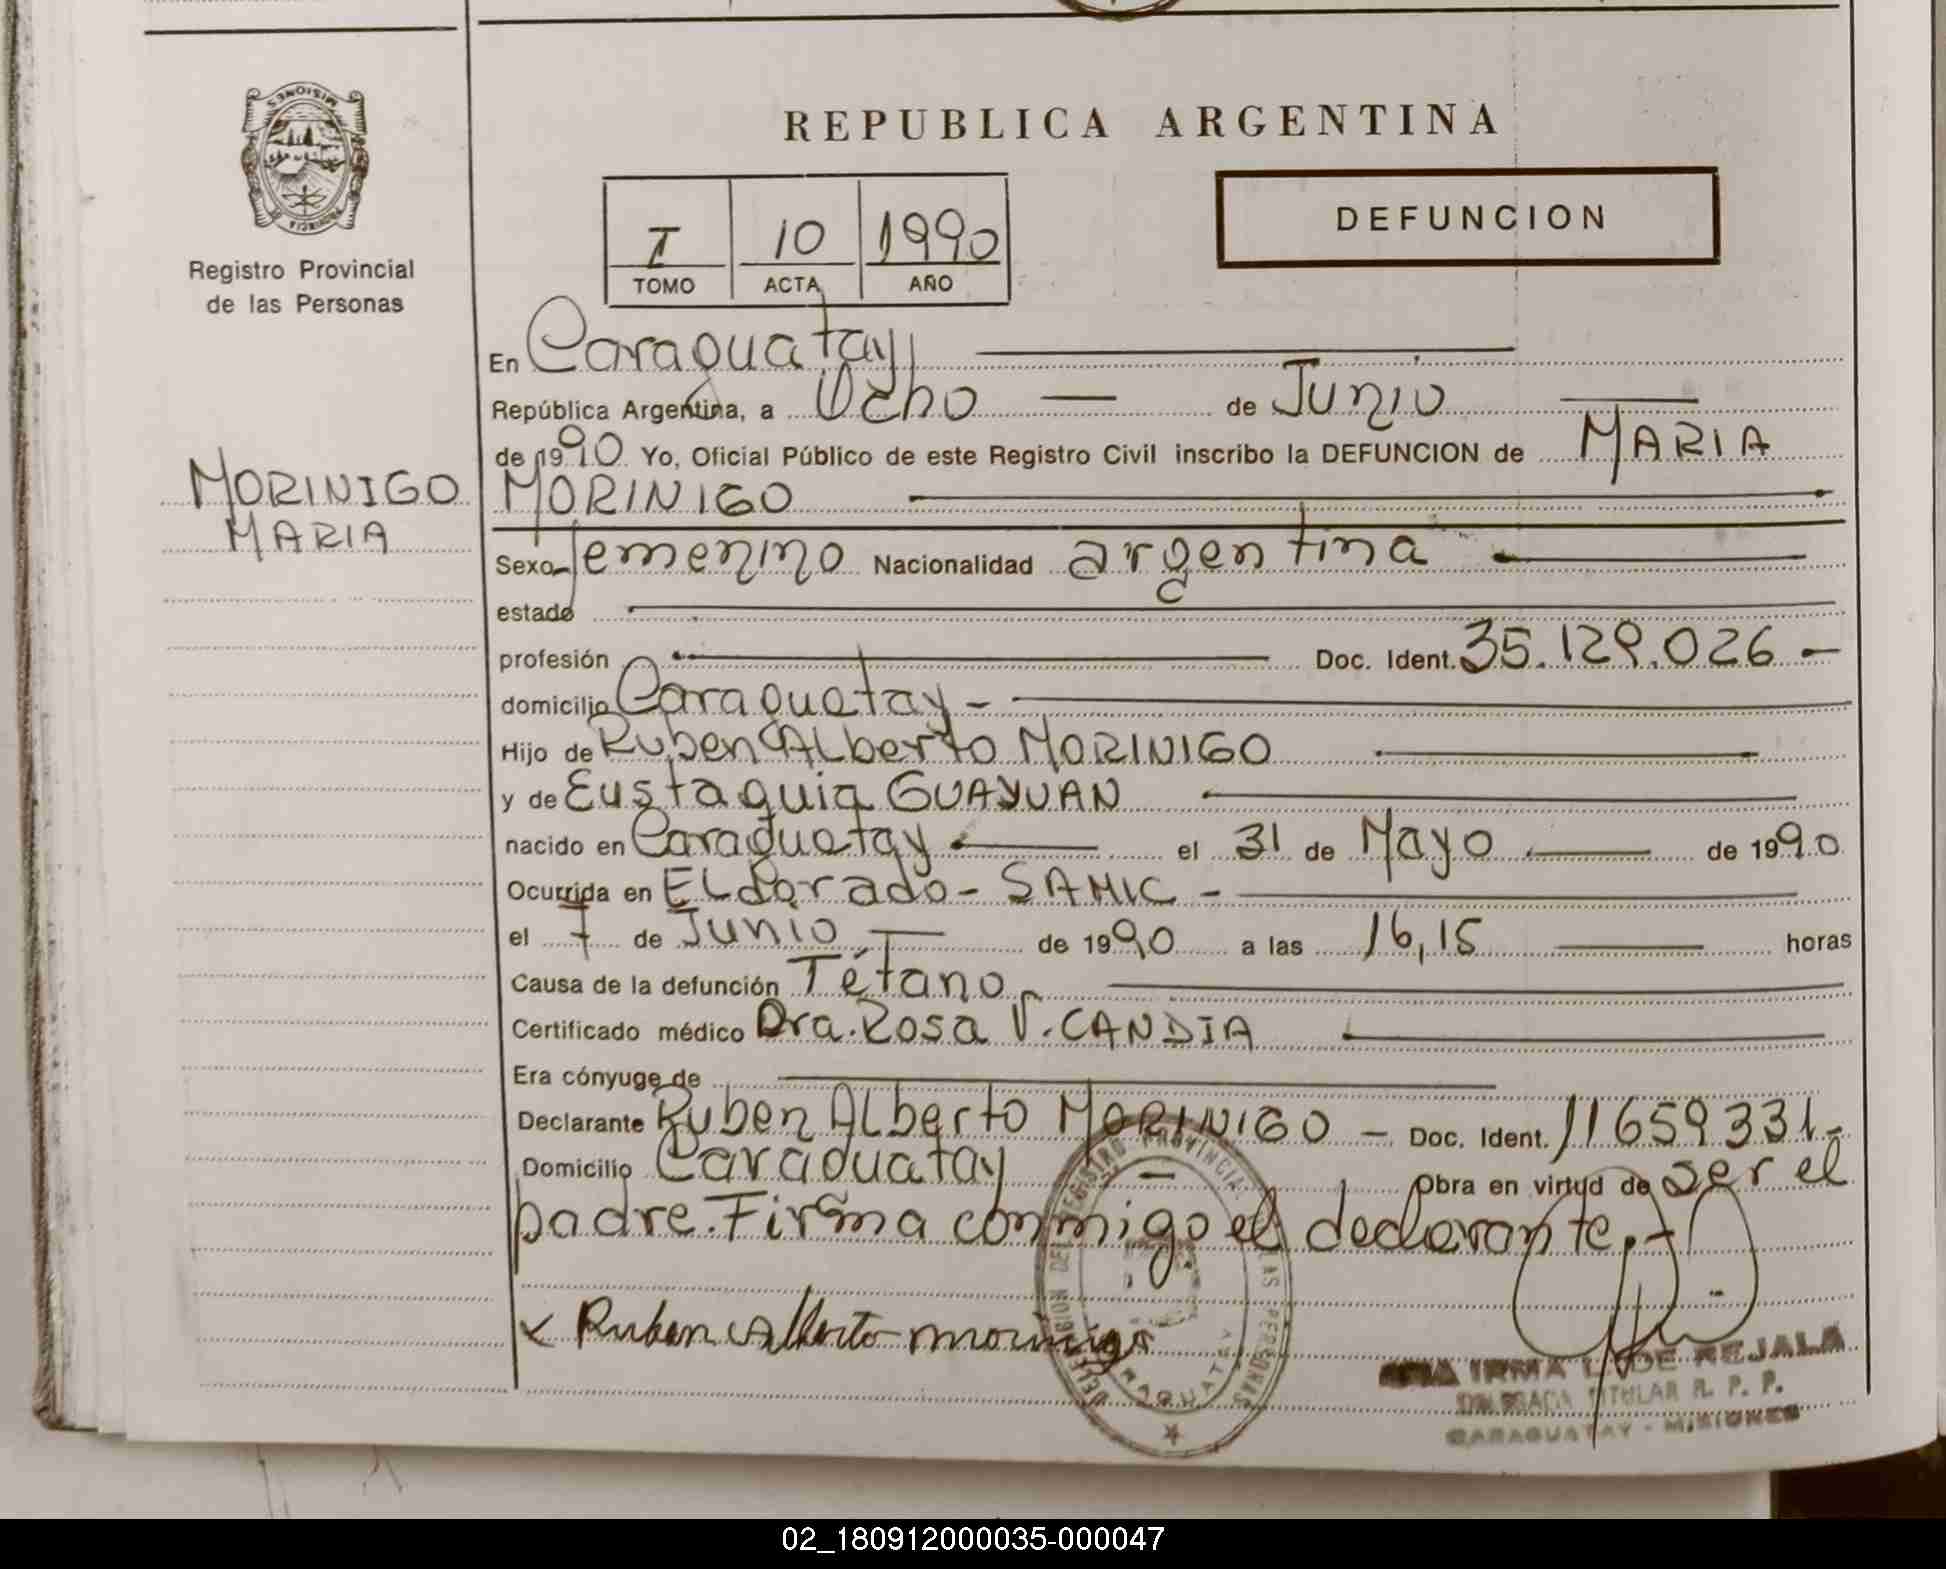 MISIONES
PROVINCIA DE
Registro Provincial
de las Personas
MORINIGO
MARIA
REPUBLICA ARGENTINA
I 10 1990
TOMO ACTA AÑO
DEFUNCION
En Caraguatay
República Argentina, a Ocho de Junio
de 1990 Yo, Oficial Público de este Registro Civil inscribo la DEFUNCION de MARIA
MORINIGO
Sexo femenino Nacionalidad argentina
estado
profesión Doc. Ident. 35.129.026.-
domicilio Caraguatay-
Hijo de Ruben Alberto MORINIGO
y de Eustaquia GUAYUAN
nacido en Caraguatay el 31 de Mayo de 1990
Ocurrida en ELdorado - SAMIC -
el 7 de Junio de 1990 a las 16,15 horas
Causa de la defunción Tétano
Certificado médico Dra. Rosa V. CANDIA
Era cónyuge de
Declarante Ruben ALberto MORINIGO - Doc. Ident. 11659331-
Domicilio Caraguatay Obra en virtud de ser el
padre. Firma conmigo el declarante.-
x Ruben Alberto morinigo
DELEGACION DEL REGISTRO PROVINCIAL DE LAS PERSONAS
CARAGUATAY
IRMA L. DE REJALA
DELEGADA TITULAR R. P. P.
CARAGUATAY - MISIONES
02_180912000035-000047